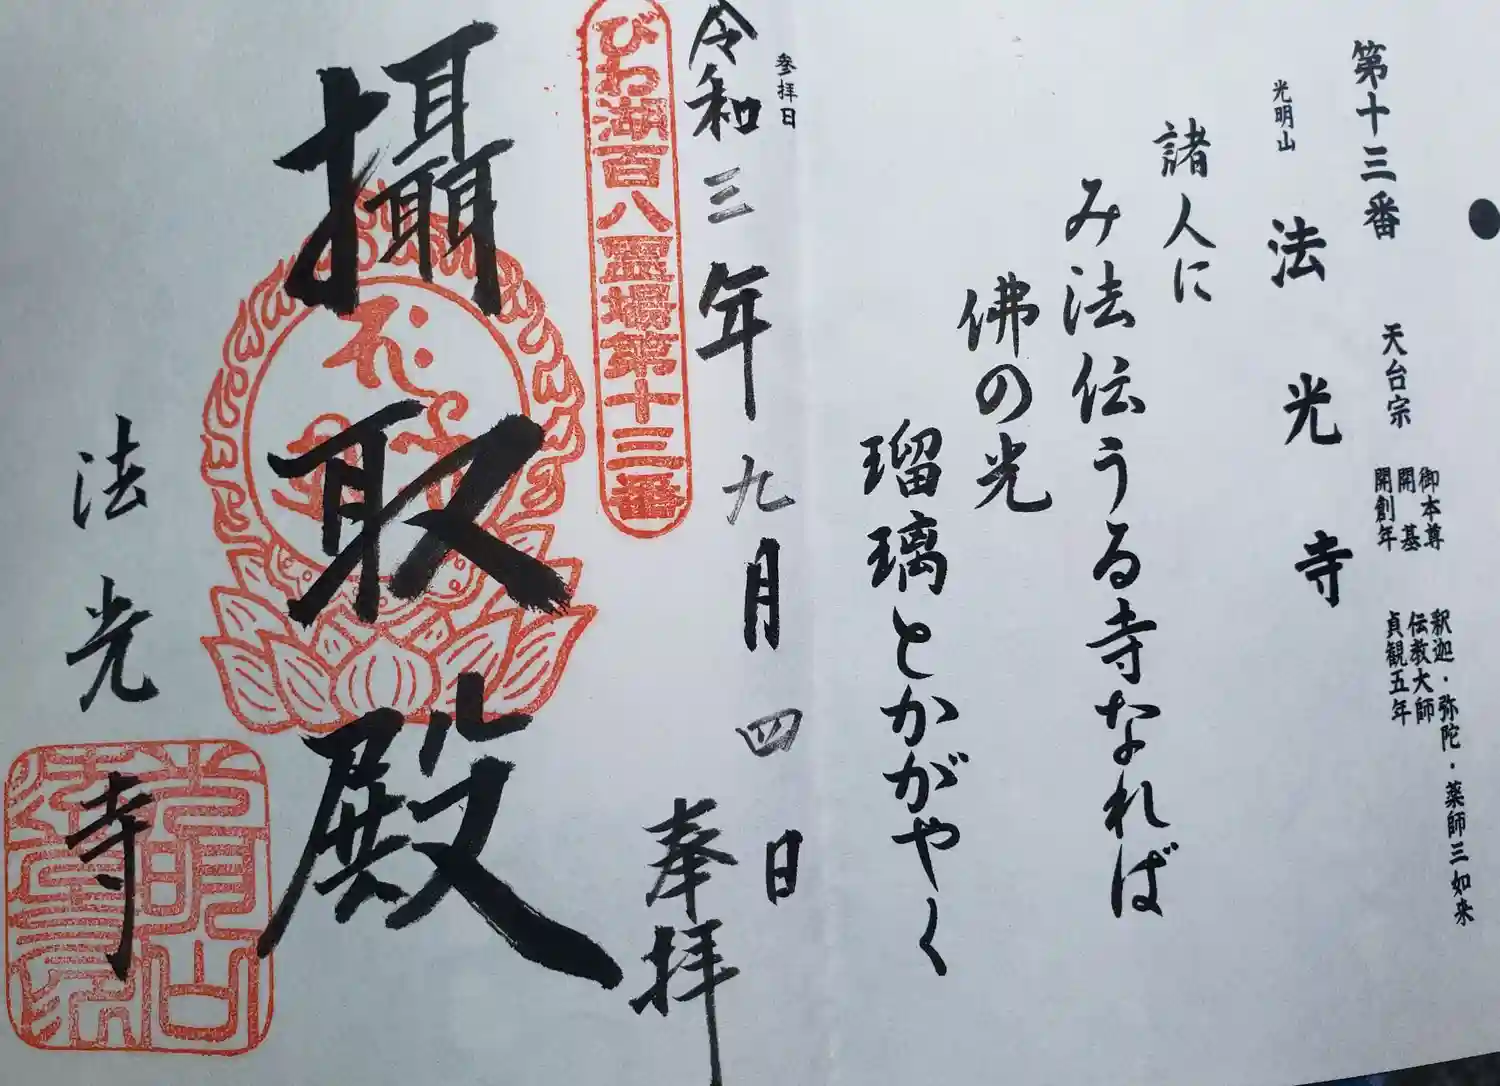 第十三番
天台宗
御本尊 釈迦・弥陀・薬師三如来
開基 伝教大師
開創年 貞観五年
光明山 法光寺
諸人に
み法伝うる寺なれば
佛の光
瑠璃とかがやく
参拝日
令和三年九月四日
奉拝
びわ湖百八霊場第十三番
攝取殿
法光寺